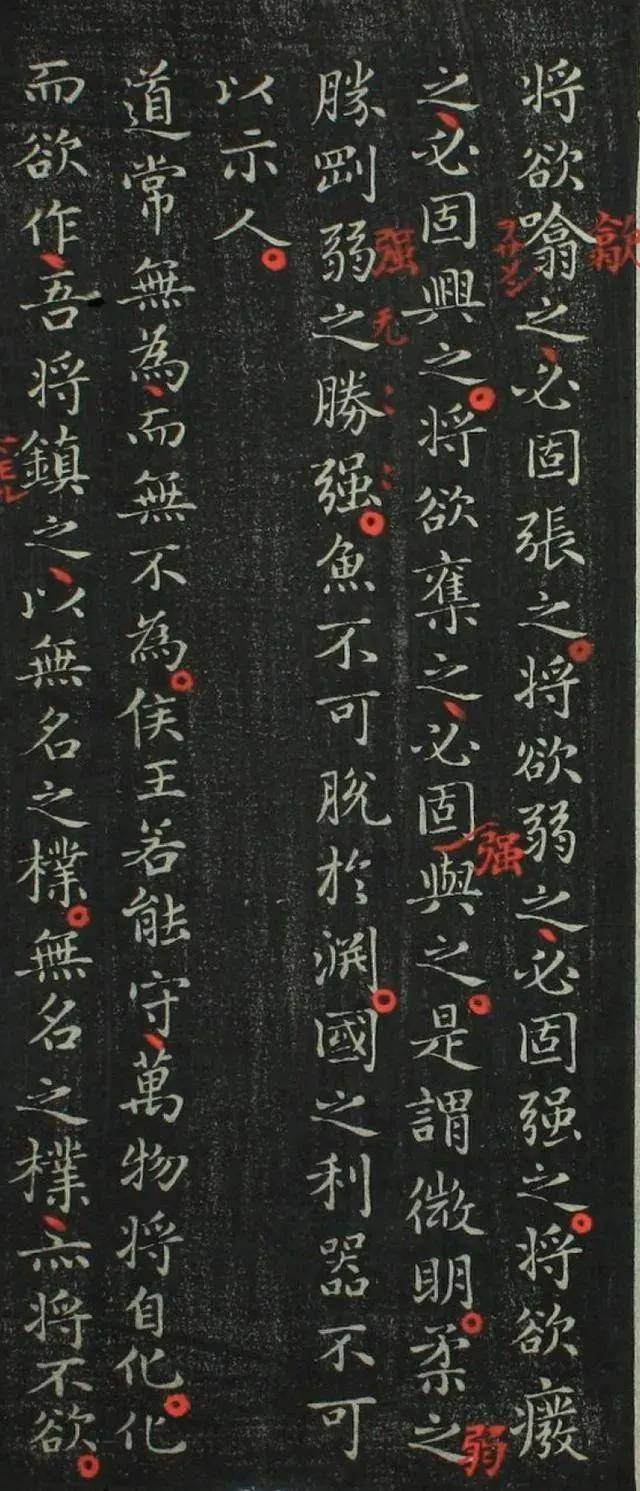 将欲噏之必固張之将欲弱之必固强之将欲癈
之必固興之将欲奪之必固與之是謂微明柔之
勝剛弱之勝强魚不可脱於渊國之利器不可
以示人
道常無為而無不為侯王若能守萬物将自化化
而欲作吾将鎮之以無名之樸無名之樸亦将不欲
歙
强
弱
强
无